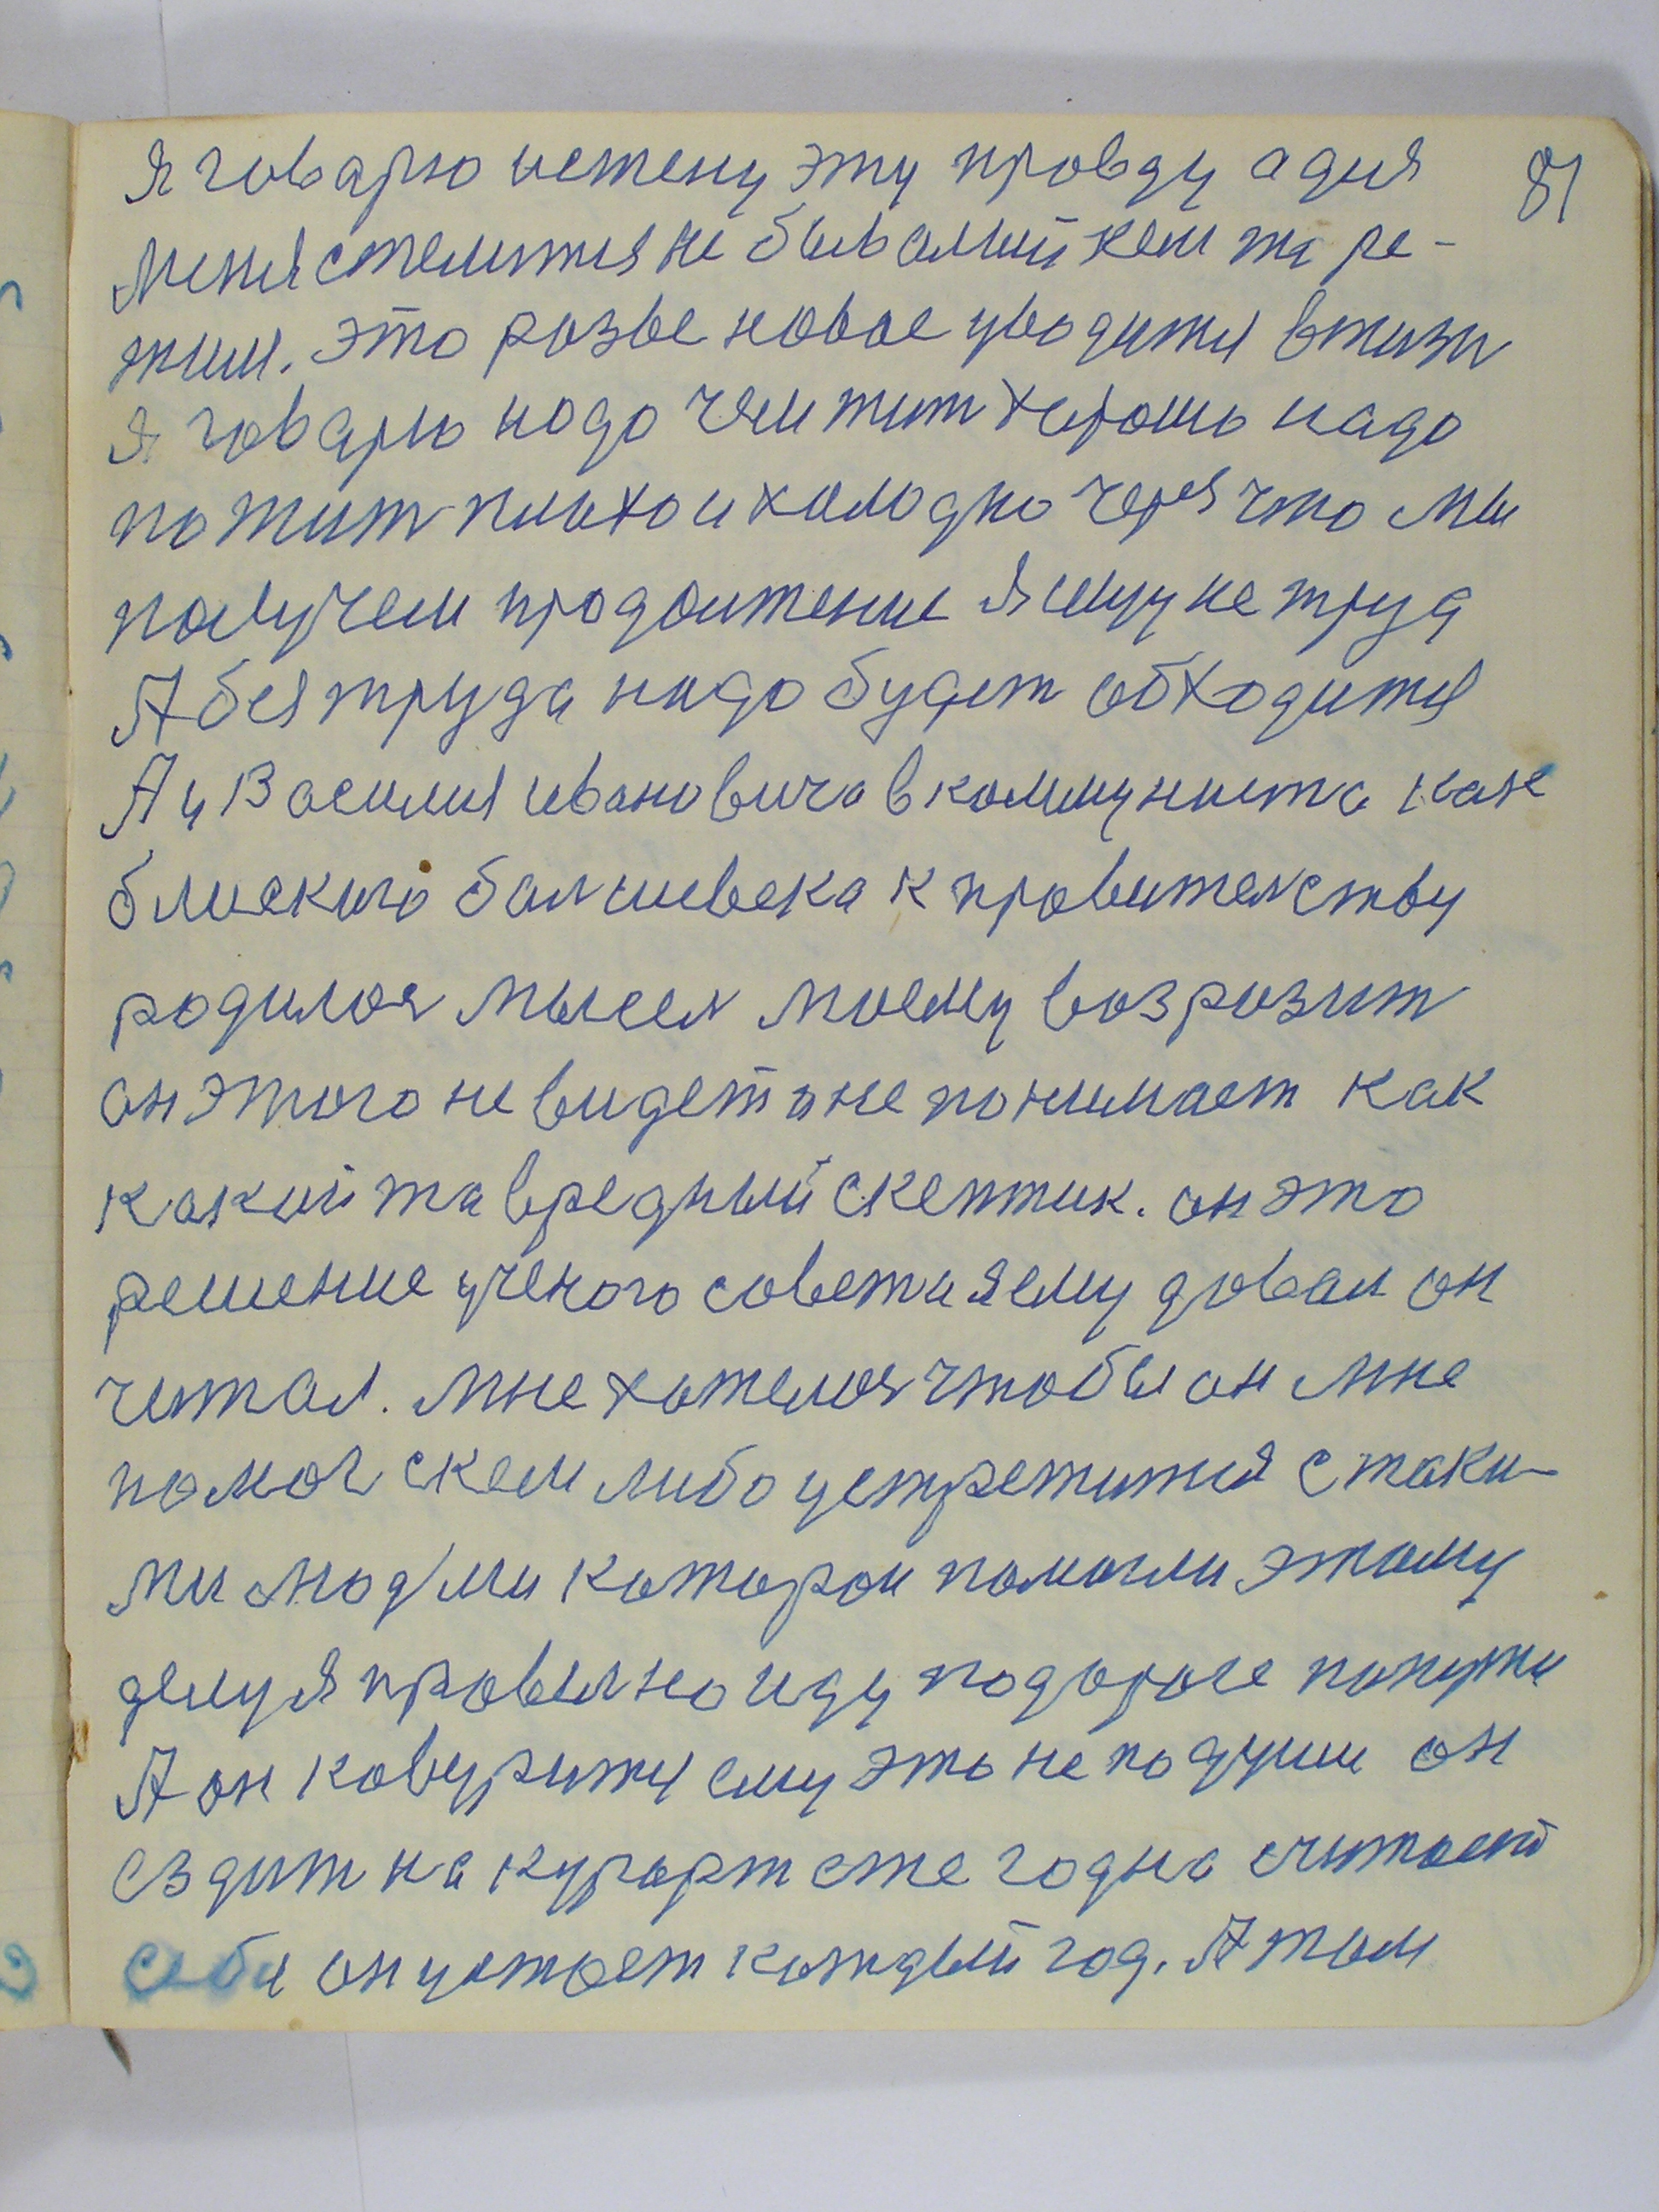 81
я говарю истену эту провду а дня
меня стелится не бывалый кем та ре-
жим. это розве новое уводится вжизн
я говарю надо чем жит хорошо надо
пожит плохо и холодно через что мы
получем продолжение я ищу не труд
А без труда надо будет обходится
А у Василия ивановича вкоммуниста как
блиского балшевека к провителству
родилос мысел моему возрозит
он этого не видет и не понимает как
какой та вредный скептик. он это
решение ученого совета я ему довал он
читал. мне хотелос чтобы он мне
помог скем либо устретится с таки-
ми люд/ми каторои помогли этому
делу я провелно иду подороге попути
А он ковурится ему это не подуши он
ездит на курорт еже годно считает
себя он устает каждый год. А том